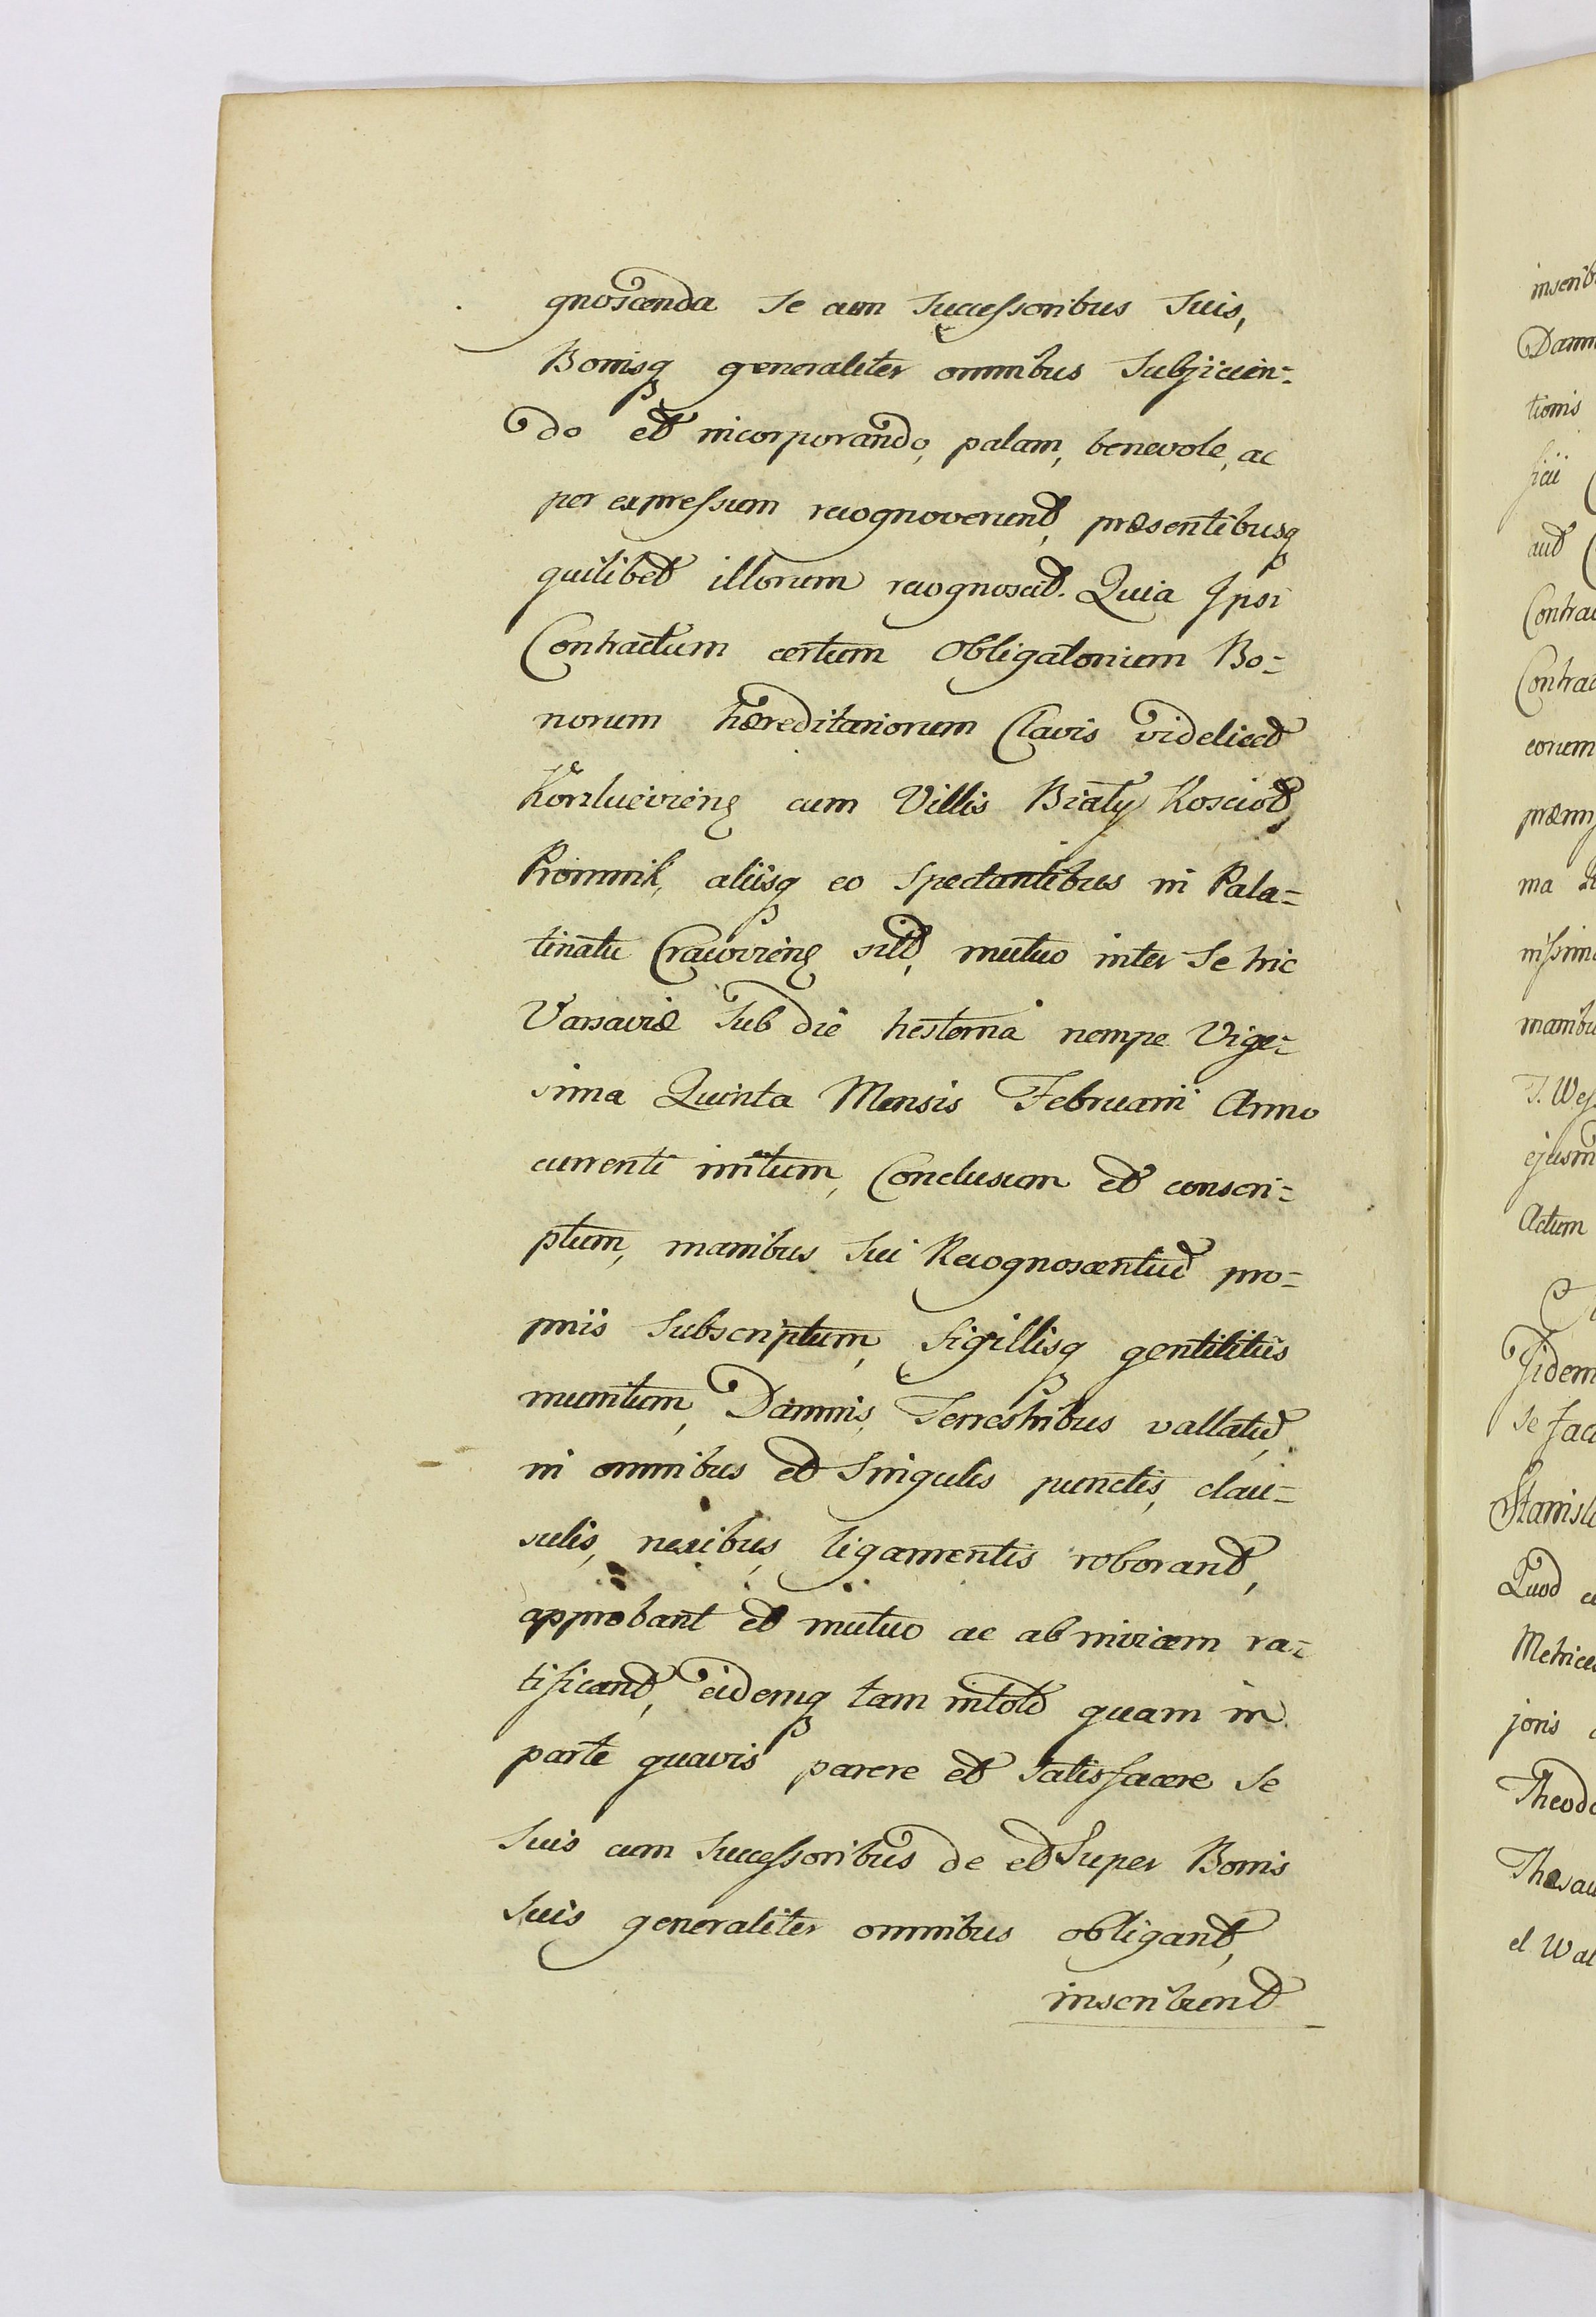 gnoscenda Se cum Successoribus Suis,
Bonisq generaliter omnibus Subjicien=
do et incorporando, palam, benevole, ac
per expressum recognoverunt, præsentibusq
quilibet illorum recognoscit. Quia Ipsi
Contractum certum Obligatorium Bo=
norum hæreditariorum Clavis videlicet
cum Villis Biały Koscioł,
aliisq eo Spectantibus in Pala=
tinatu Cracovien sit, mutuo inter Se hic
Varsaviæ Sub die hesterna nempe Vige=
sima Quinta Mensis Februarii Anno
currenti initum, Conclusum et conscri=
ptum, manibus Sui Recognoscentium pro=
priis Subscriptum, Sigillisq gentilitiis
munitum, Damnis, Terrestribus vallatum,
in omnibus et Singulis punctis, clau=
sulis, nexibus, ligamentis roborant,
approbant et mutuo ac ab invicem ra=
tificant, eidemq tam in toto quam in
parte quavis parere et Satisfacere Se
Suis cum Successoribus de et Super Bonis
Suis generaliter omnibus obligant,
inscribunt
inscrib
Damn
tionis
ficii
aut
Contrac
Contrac
eorum
ma
nissima
manibu
Actum
Iidem
Se fac
Stanisl
Quod
Metrices
joris
Theodo
Thesau
el Wal